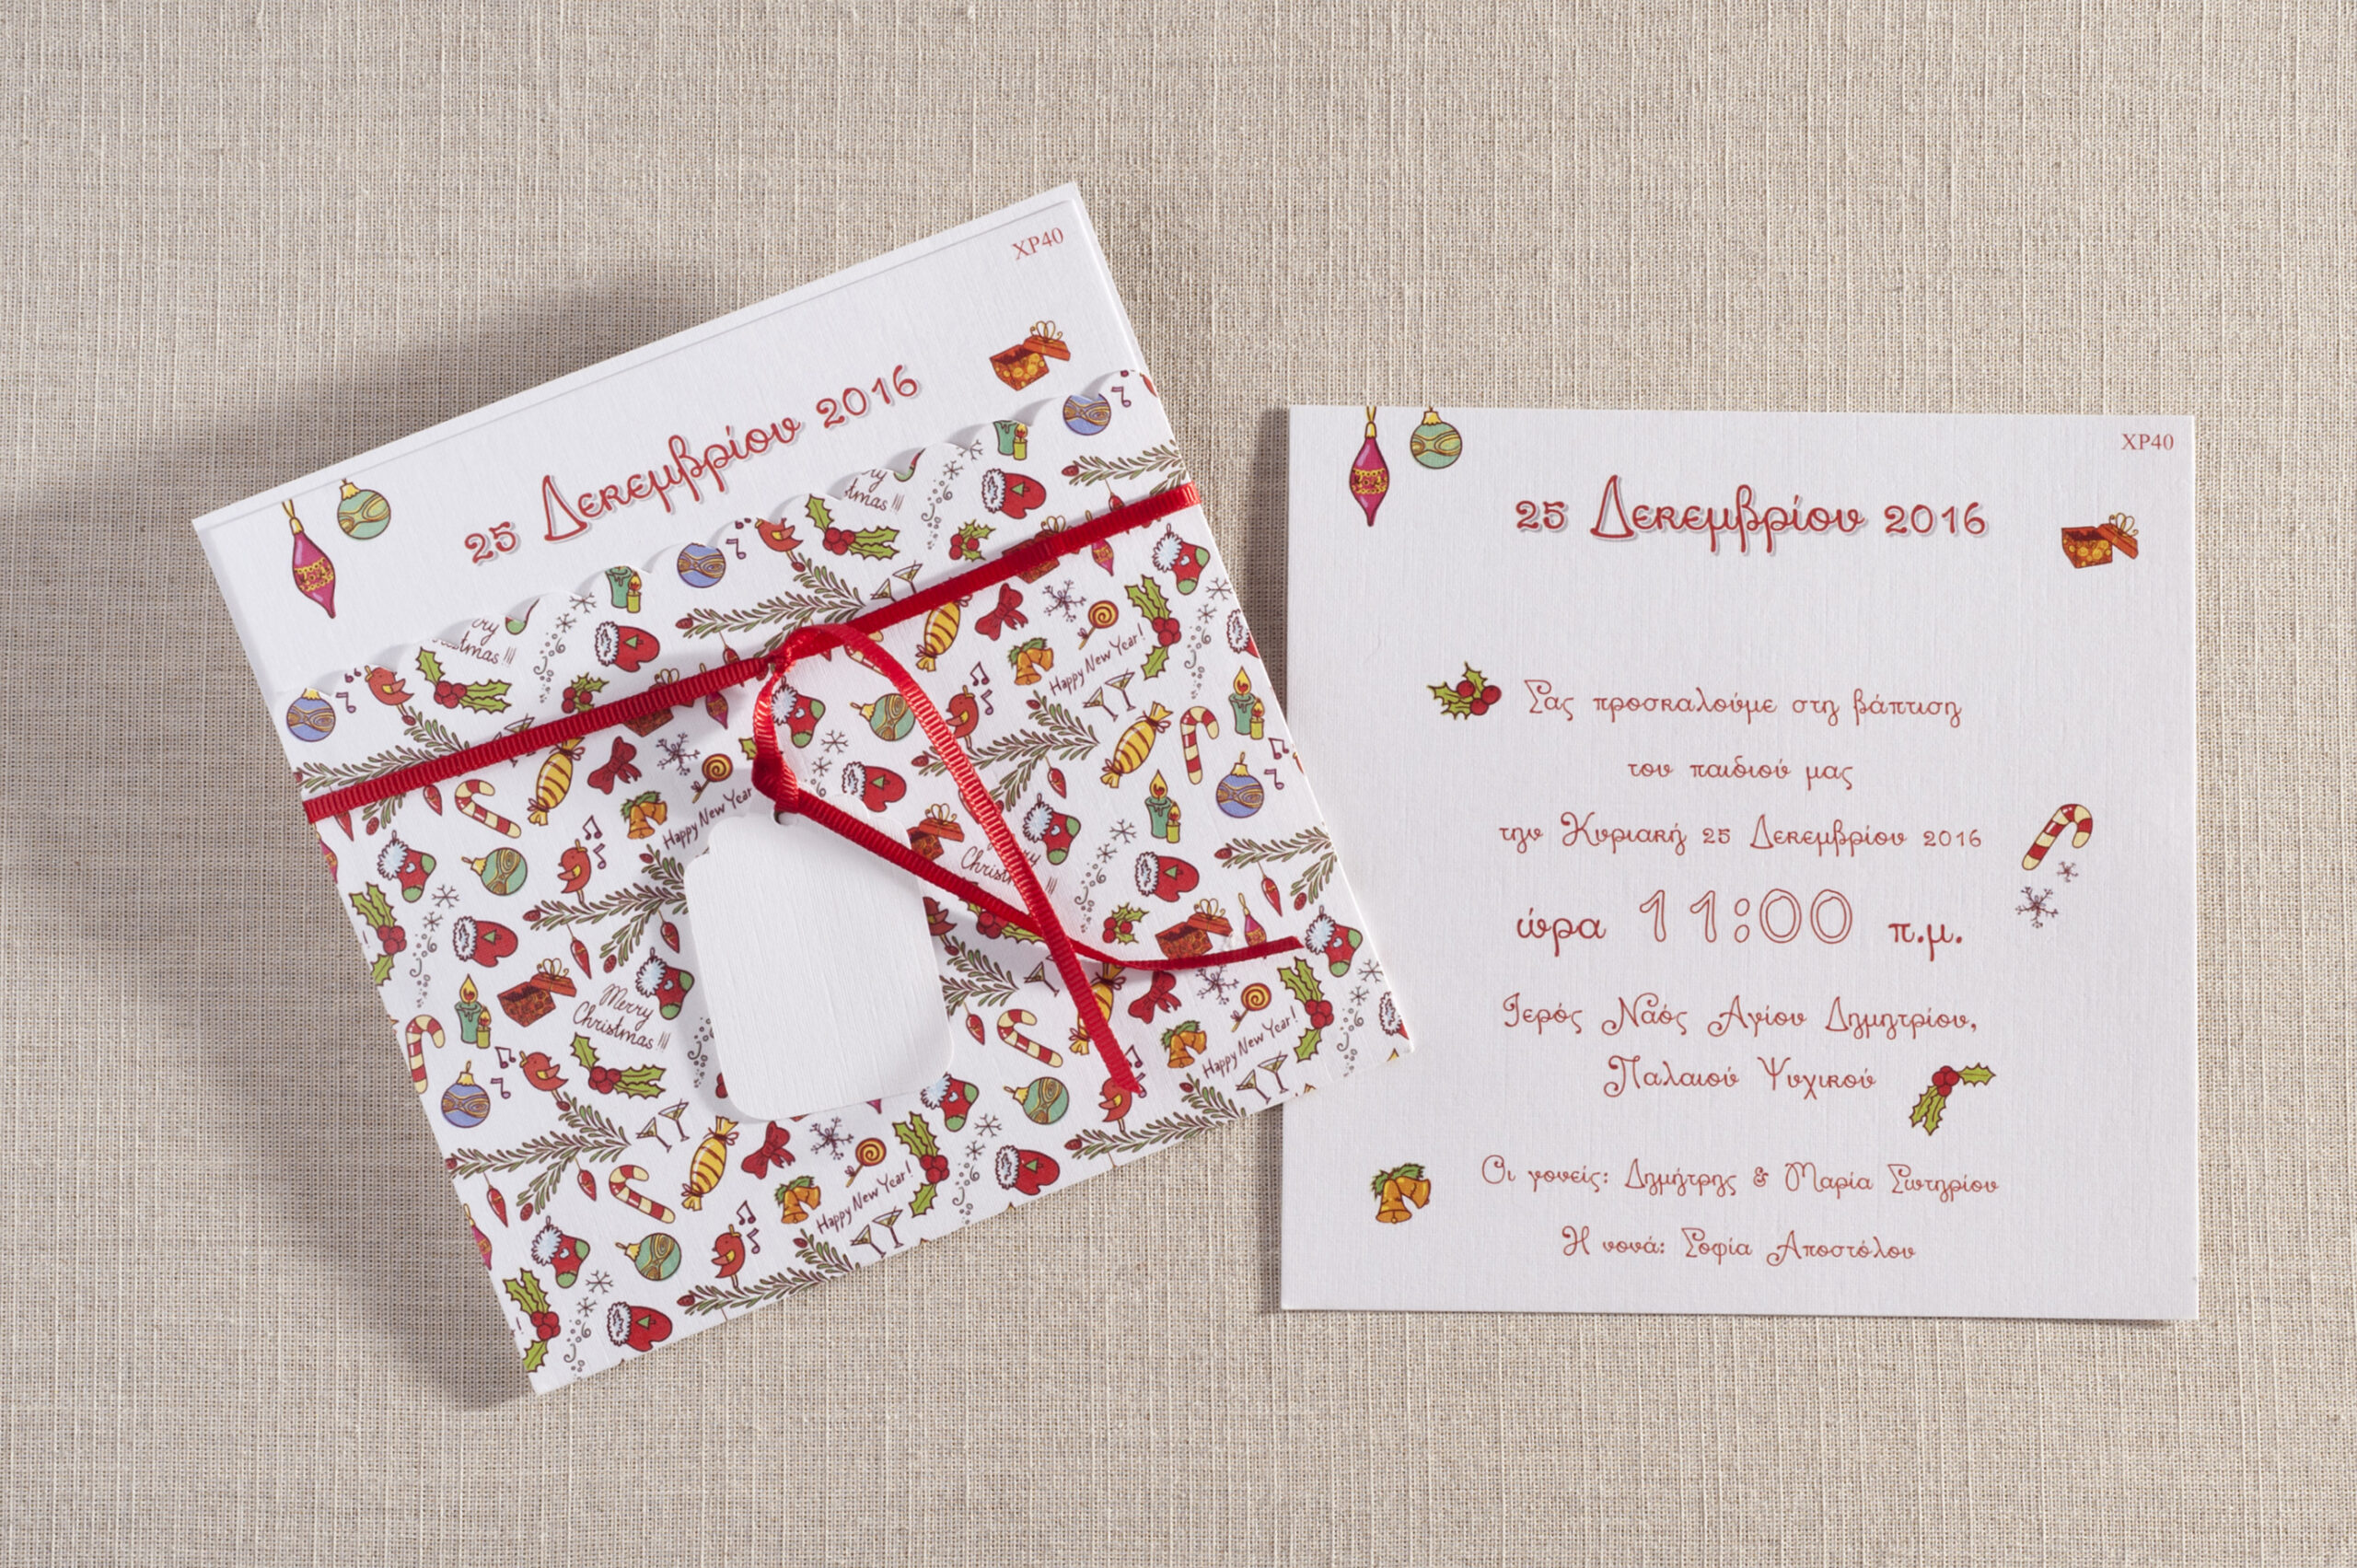 XP40
25 Δεκεμβρίου 2016
Merry
Christmas !!!
Happy New Year!
Happy New Year
Happy New Year!
Happy New Year!
XP40
25 Δεκεμβρίου 2016
Σας προσκαλούμε στη βάπτιση
του παιδιού μας
την Κυριακή 25 Δεκεμβρίου 2016
ώρα 11:00 π.μ.
Ιερός Ναός Αγίου Δημητρίου,
Παλαιού Ψυχικού
Οι γονείς: Δημήτρης & Μαρία Σωτηρίου
Η νονά: Σοφία Αποστόλου